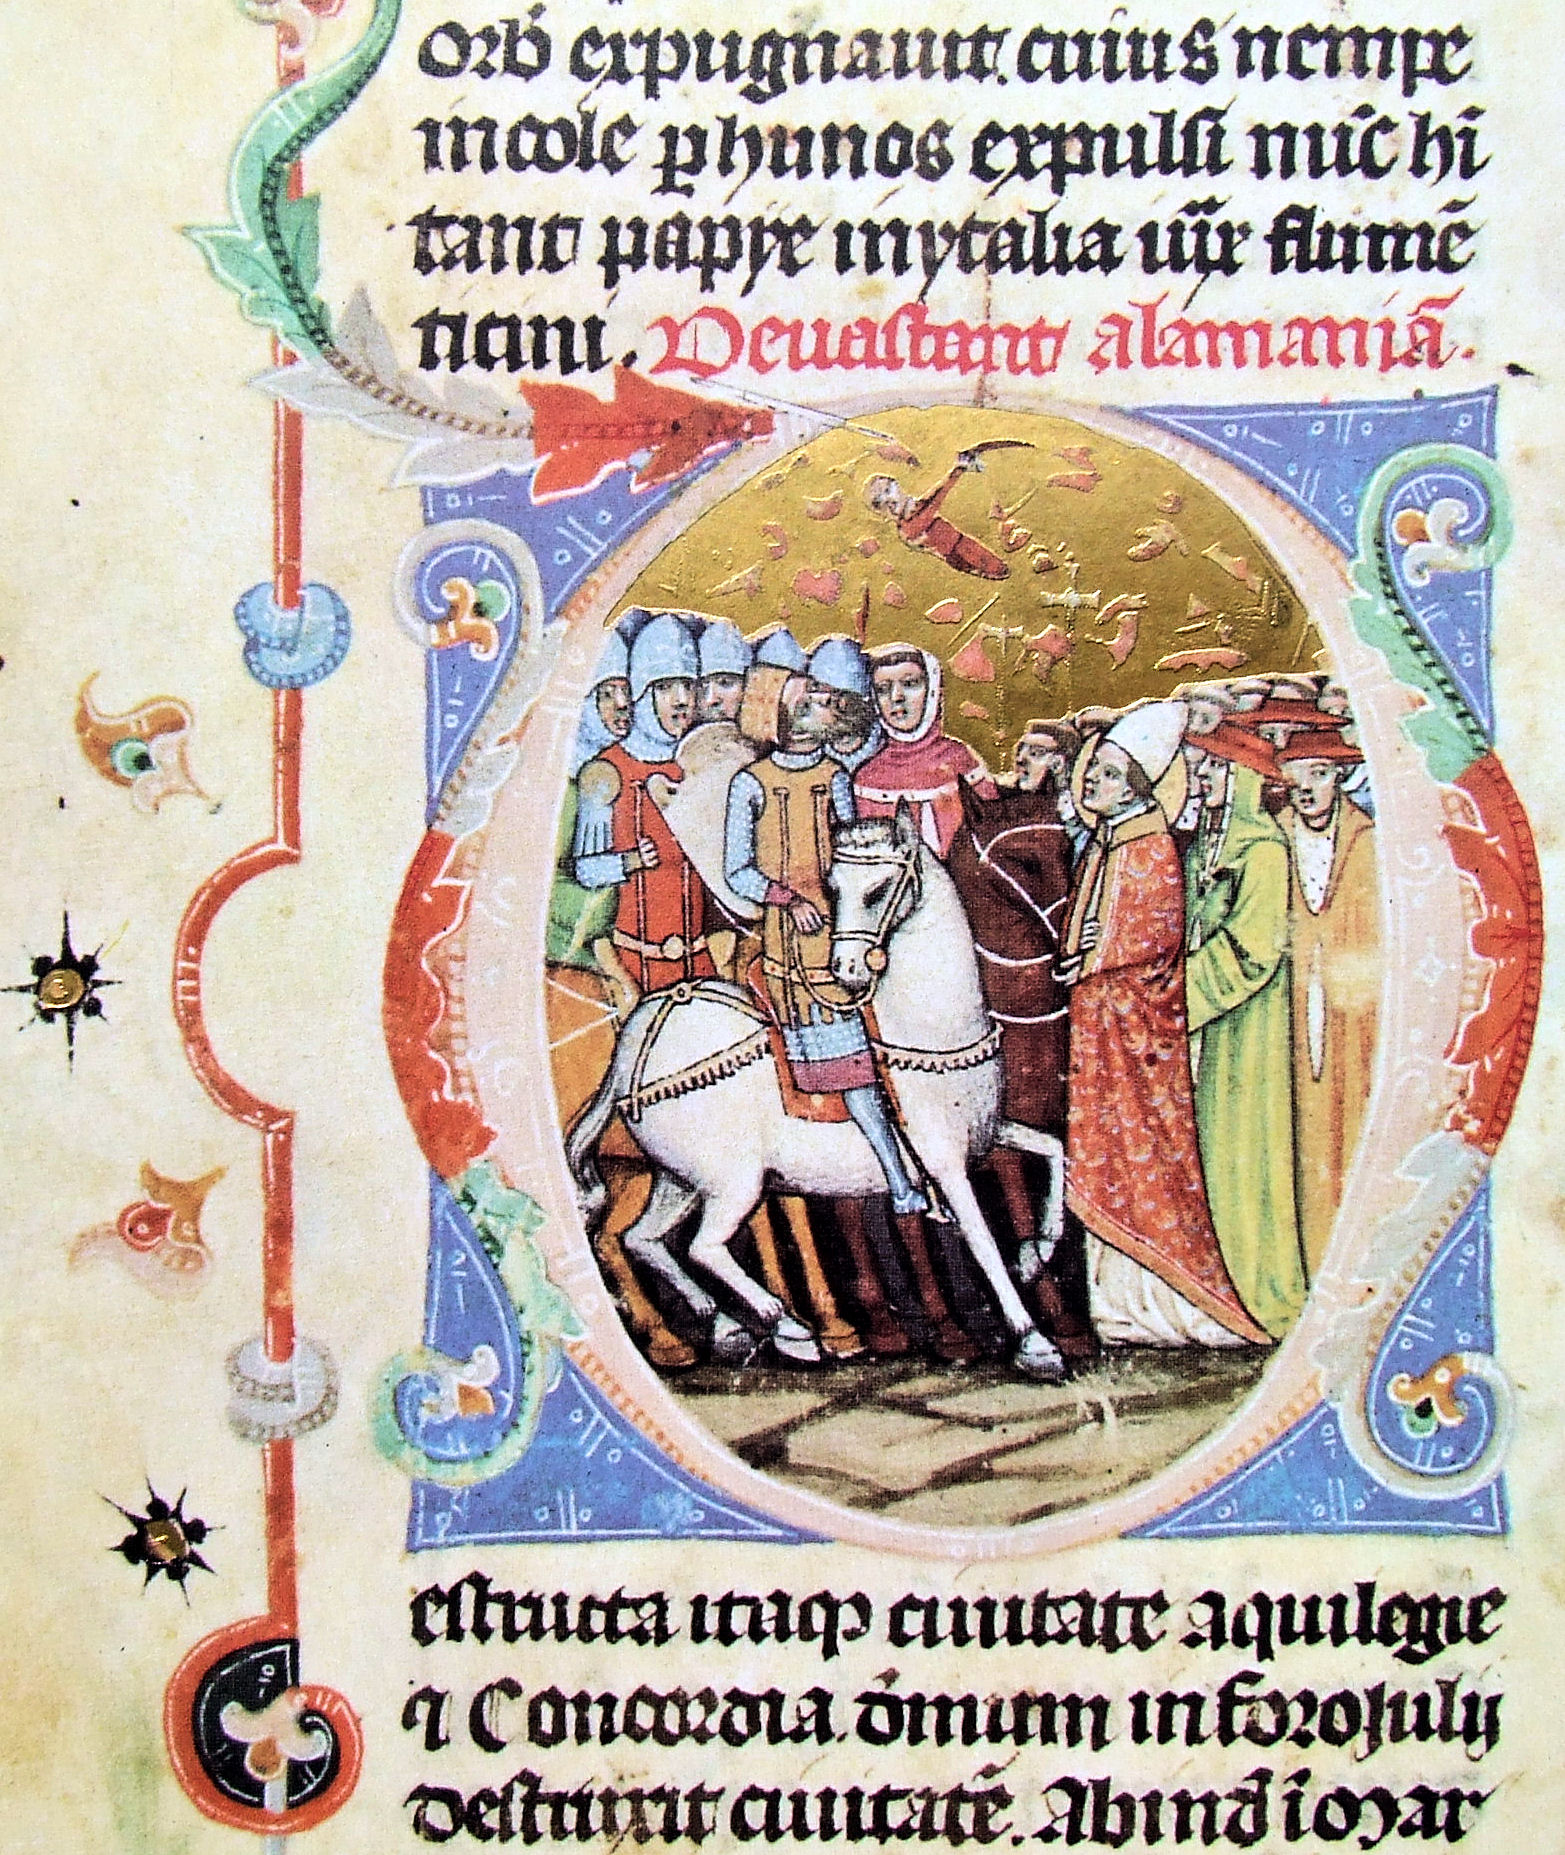 orb expugnauit. cuius nempe
incole p hunos expulsi nūc hī
tant papye in ytalia iux flumē
ticini. Deuastant alamaniā.
estructa itaq ciuitate aquilegie
⁊ Concordia. dmum in foroiulij
destruxit ciuitatē. Ab ind i